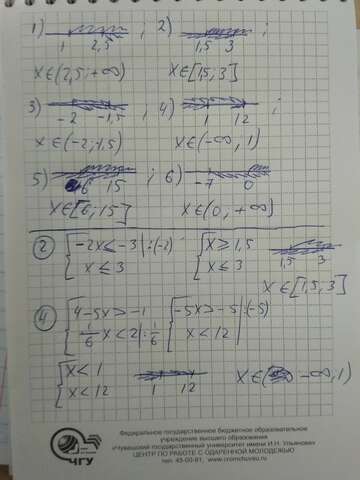 1) 1 2,5 ; 2) 1,5 3 ;
x∈(2,5;+∞) x∈[1,5;3]
3) -2 -1,5 ; 4) 1 12 ;
x∈(-2;-1,5) x∈(-∞, 1)
5) 6 15 ; 6) -7 0
x∈[6;15] x∈(0,+∞)
② { -2x≤-3 |:(-2) { x≥1,5
x≤3 x≤3 1,5 3
x∈[1,5;3]
④ { 4-5x>-1 { -5x>-5 |:(-5)
1/6 x<2 |:1/6 x<12
{ x<1
x<12 1 12 x∈(-∞,1)
Федеральное государственное бюджетное образовательное
учреждение высшего образования
«Чувашский государственный университет имени И.Н. Ульянова»
ЦЕНТР ПО РАБОТЕ С ОДАРЕННОЙ МОЛОДЕЖЬЮ
ЧГУ